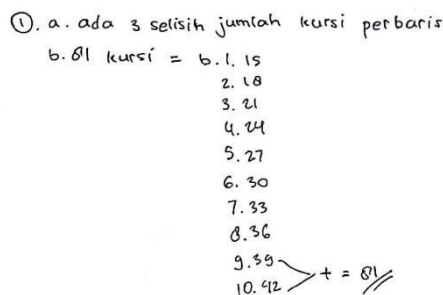 ①. a. ada 3 selisih jumlah kursi perbaris
b. 81 kursi = b.1. 15
2. 18
3. 21
4. 24
5. 27
6. 30
7. 33
8. 36
9. 39
10. 42 > + = 81